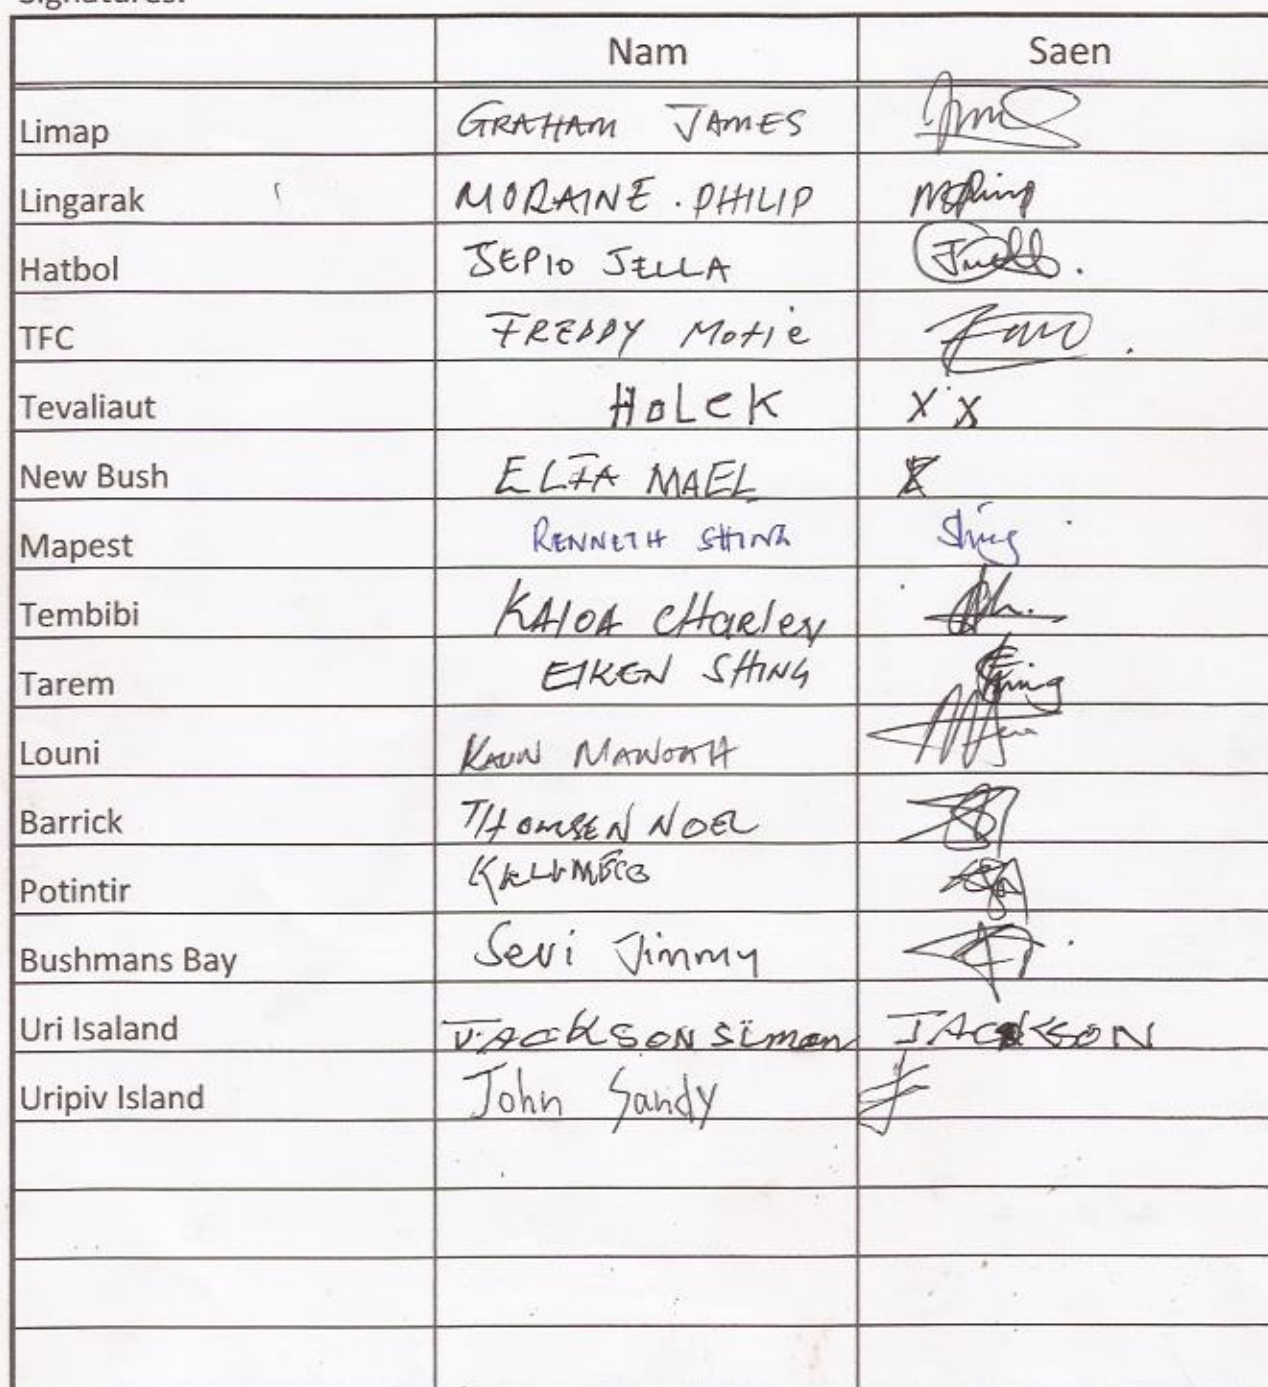 Signatures:
Nam Saen
Limap GRAHAM JAMES
Lingarak MORAINE . PHILIP
Hatbol SEPIO JELLA
TFC FREDDY Motie
Tevaliaut HOLEK X X
New Bush ELIA MAEL
Mapest RENNETH SHING Shing
Tembibi KALOA CHARLEY
Tarem EIKEN SHING
Louni
Barrick THOMSEN NOEL
Potintir
Bushmans Bay Sevi Jimmy
Uri Isaland JACKSON Simon JACKSON
Uripiv Island John Sandy